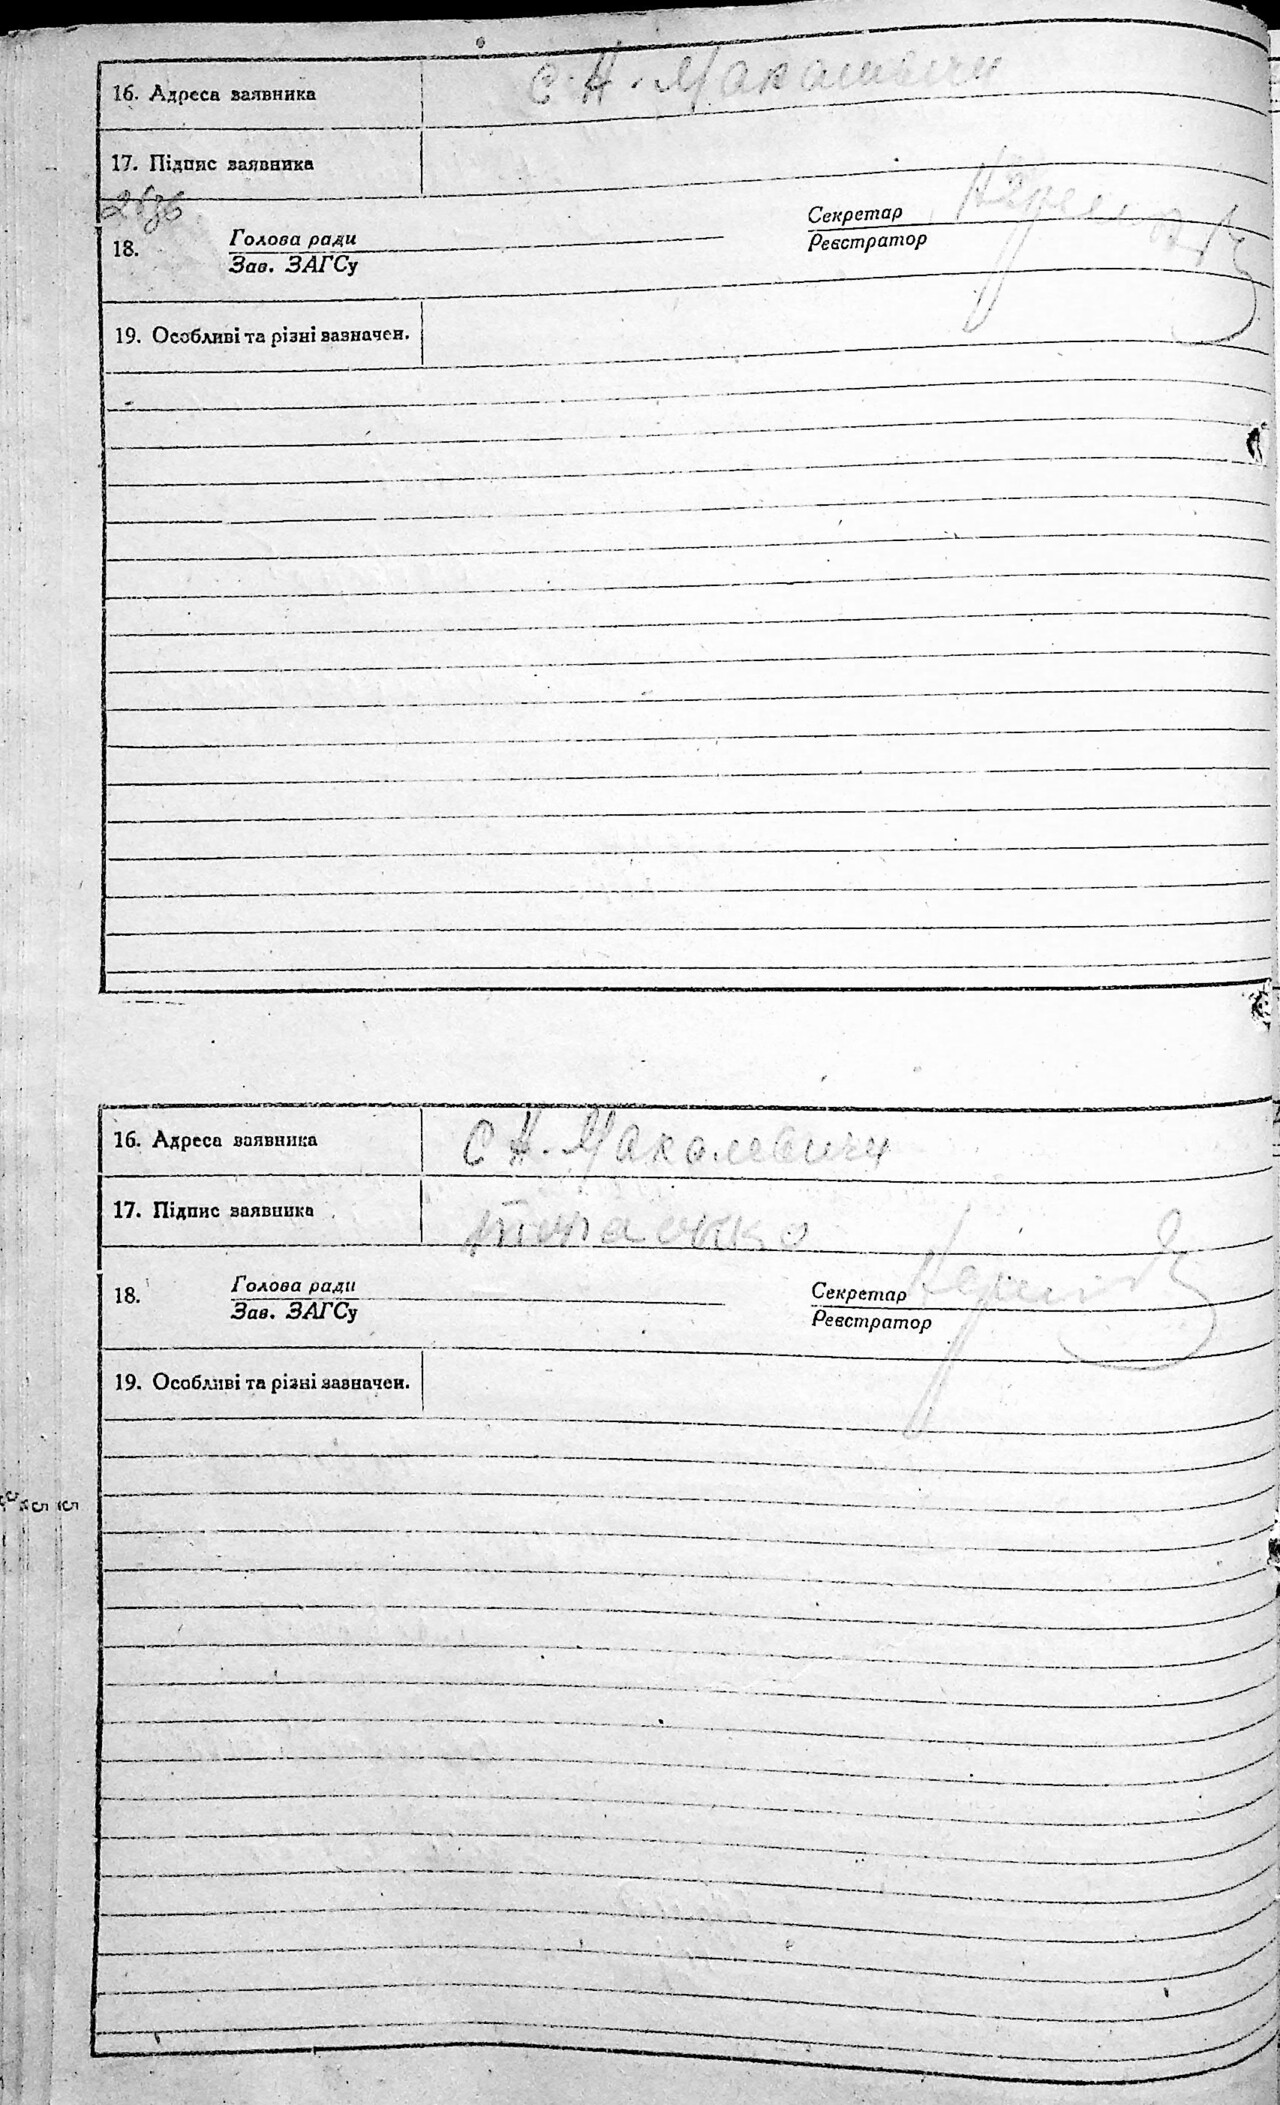 16. Адреса заявника с. Н. Макалевичи
17. Підпис заявника
18. Голова ради Секретар
Зав. ЗАГСу Реєстратор
19. Особливі та різні зазначен.
16. Адреса заявника с Н. Макалевичи
17. Підпис заявника
18. Голова ради Секретар
Зав. ЗАГСу Реєстратор
19. Особливі та різні зазначен.